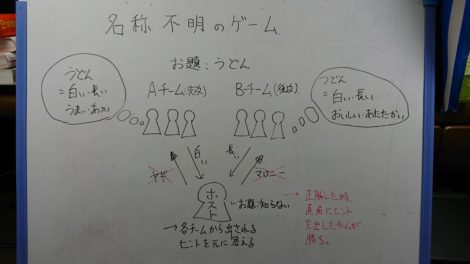 名称不明のゲーム
お題:うどん
うどん
=白い・長い
うまい・あつい
Aチーム(先攻)
Bチーム(後攻)
うどん
=白い・長い
おいしい・あたたかい
白い
長い
マロニー
ホスト
お題知らない
→各チームから出される
ヒントを元に答える
→正解した時、
直前にヒント
を出したチームが
勝ち。